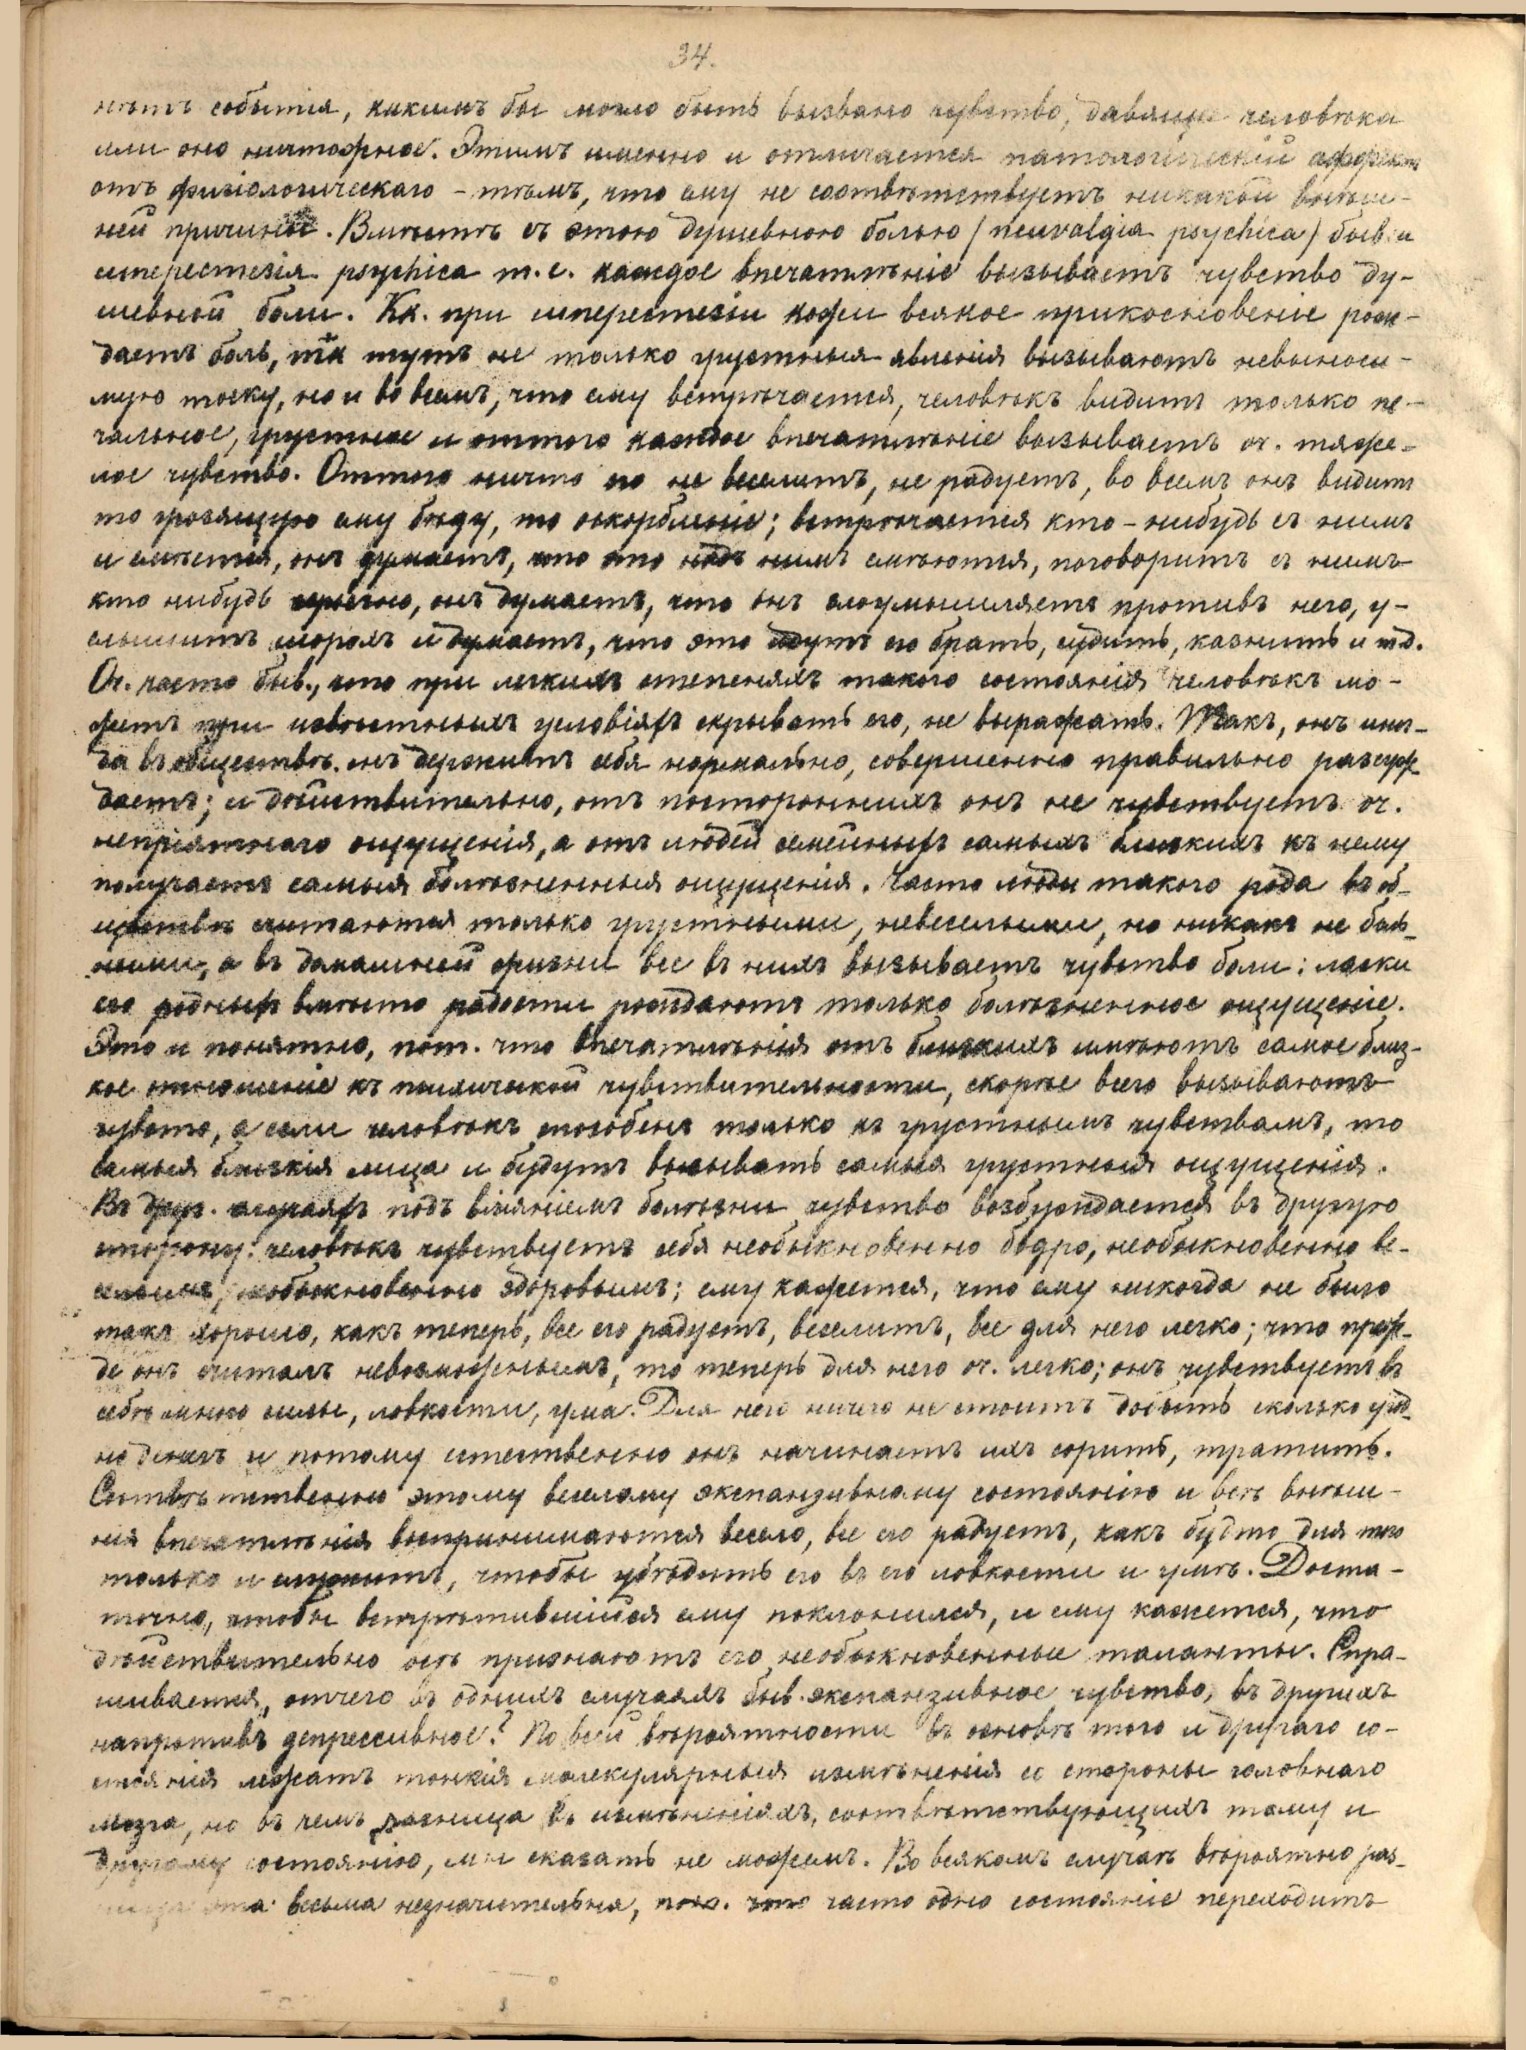 34.
нѣтъ событія, какимъ бы могло быть вызвано чувство, давящее человѣка
или оно ничтожное. Этимъ именно и отличается патологическій аффектъ
отъ физіологическаго – тѣмъ, что ему не соотвѣтствуетъ никакой внѣш-
ней причины. Вмѣстѣ съ этою душевною болью (neuralgia psychica) быв. и
иперестезія psychica т. е. каждое впечатлѣніе вызываетъ чувство ду-
шевной боли. Кк. при иперестезіи кожи всякое прикосновеніе рож-
даетъ боль, тк тутъ не только грустныя явленія вызываютъ невыноси-
мую тоску, но и во всемъ, что ему встрѣчается, человѣкъ видитъ только пе-
чальное, грустное и оттого каждое впечатлѣніе вызываетъ оч. тяже-
лое чувство. Оттого ничто его не веселитъ, не радуетъ, во всемъ онъ видитъ
то грозящую ему бѣду, то оскорбленіе; встрѣчается кто-нибудь съ нимъ
и смѣется, онъ думаетъ, что это надъ нимъ смѣются, поговоритъ съ нимъ
кто нибудь серьезно, онъ думаетъ, что онъ злоумышляетъ противъ него, у-
слышитъ шорохъ и думаетъ, что это идутъ его брать, судить, казнить и тд.
Оч. часто быв., что при легкихъ степеняхъ такого состоянія человѣкъ мо-
жетъ при извѣстныхъ условіяхъ скрывать его, не выражать. Такъ, онъ иног-
да въ обществѣ онъ держитъ себя нормально, совершенно правильно разсуж-
даетъ; и дѣйствительно, отъ постороннихъ онъ не чувствуетъ оч.
непріятнаго ощущенія, а отъ людей семейныхъ самыхъ близкихъ къ нему
получаетъ самыя болѣзненныя ощущенія. Часто люди такого рода въ об-
ществѣ считаются только грустными, невеселыми, но никакъ не боль-
ными, а въ домашней жизни все въ нихъ вызываетъ чувство боли: ласки
его родныхъ вмѣсто радости рождаютъ только болѣзненное ощущеніе.
Это и понятно, пот. что впечатлѣнія отъ близкихъ имѣютъ самое близ-
кое отношеніе къ психической чувствительности, скорѣе всего вызываютъ
чувство, а если человѣкъ способенъ только къ грустнымъ чувствамъ, то
самыя близкія лица и будутъ вызывать самыя грустныя ощущенія.
Въ друг. случаяхъ подъ вліяніемъ болѣзни чувство возбуждается въ другую
сторону: человѣкъ чувствуетъ себя необыкновенно бодро, необыкновенно ве-
селымъ, необыкновенно здоровымъ; ему кажется, что ему никогда не было
такъ хорошо, какъ теперь, все его радуетъ, веселитъ, все для него легко; что преж-
де онъ считалъ невозможнымъ, то теперь для него оч. легко; онъ чувствуетъ въ
себѣ много силы, ловкости, ума. Для него ничего не стоитъ добыть сколько угод-
но денегъ и потому естественно онъ начинаетъ ихъ сорить, тратить.
Соотвѣтственно этому веселому экспанзивному состоянію и всѣ внѣш-
нія впечатлѣнія воспринимаются весело, все его радуетъ, какъ будто для того
только и служитъ, чтобы убѣдить его въ его ловкости и умѣ. Доста-
точно, чтобы встрѣтившійся ему поклонился, и ему кажется, что
дѣйствительно всѣ признаютъ его необыкновенные таланты. Спра-
шивается, отчего въ однихъ случаяхъ быв. экспанзивное чувство, въ другихъ
напротивъ депрессивное? По всей вѣроятности въ основѣ того и другаго со-
стоянія лежатъ тонкія молекулярныя измѣненія со стороны головнаго
мозга, но въ чемъ разница въ измѣненіяхъ, соотвѣтствующихъ тому и
другому состоянію, мы сказать не можемъ. Во всякомъ случаѣ вѣроятно раз-
ница эта весьма незначительная, пот. что часто одно состояніе переходитъ